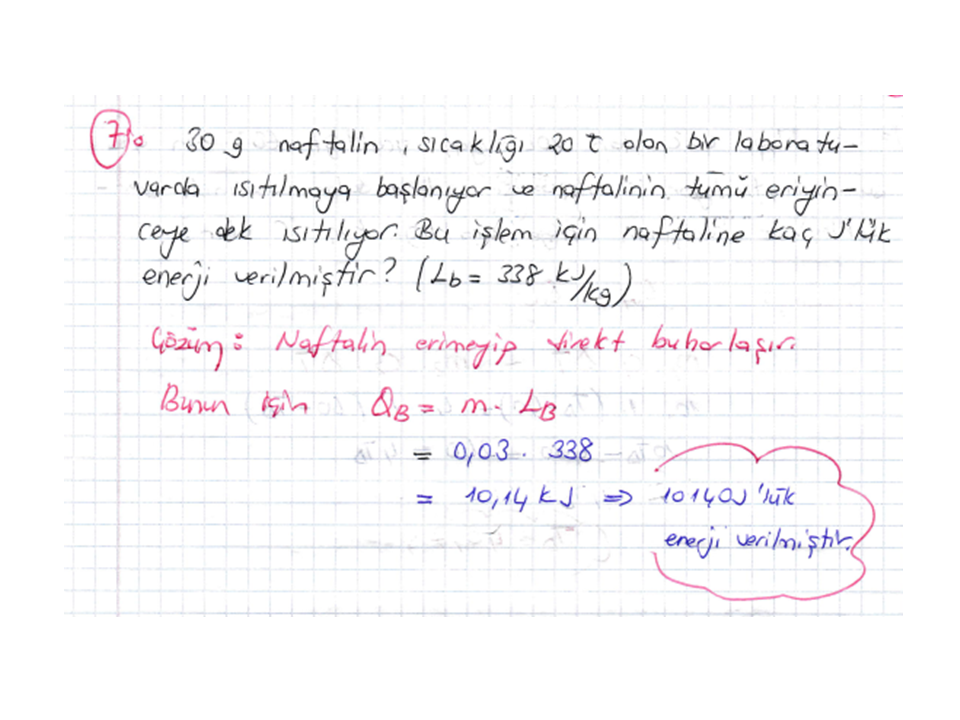 7) 30 g naftalin, sıcaklığı 20 °C olan bir laboratu-
varda ısıtılmaya başlanıyor ve naftalinin tümü eriyin-
ceye dek ısıtılıyor. Bu işlem için naftaline kaç J'lük
enerji verilmiştir? (Lb = 338 kJ/kg)
Çözüm: Naftalin erimeyip direkt buharlaşır.
Bunun için QB = m. LB
= 0,03 . 338
= 10,14 kJ ⇒ 10140J'lük
enerji verilmiştir.